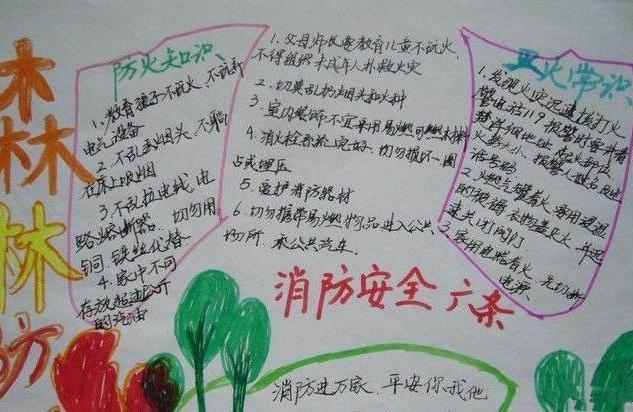 森
林
防
防火知识
1. 教育孩子不玩火、不玩弄
电气设备
2. 不乱丢烟头、不躺
在床上吸烟
3. 不乱拉电线、电
路熔断器、切勿用
铜、铁丝代替
4. 家中不可
存放超过公斤
的汽油
1. 父母师长要教育儿童不玩火、
不得组织未成年人扑救火灾
2. 切莫乱扔烟头和火种
3. 室内装饰不宜采用易燃可燃材料
4. 消火栓系统完好、切勿损坏、圈
占或埋压
5. 爱护消防器材
6. 切勿携带易燃物品进入公共
场所、乘公共汽车
灭火常识
1. 发现火灾迅速拨打火
警电话119. 报警时要讲清
详细地址、起火部位
火势大小、报警人姓名及电
话号码
2. 燃气罐着火、要用浸湿
的被褥、衣物盖灭火、并迅
速关闭阀门
3. 家用电器着火、先切断
电源
消防安全六条
消防进万家、平安你我他